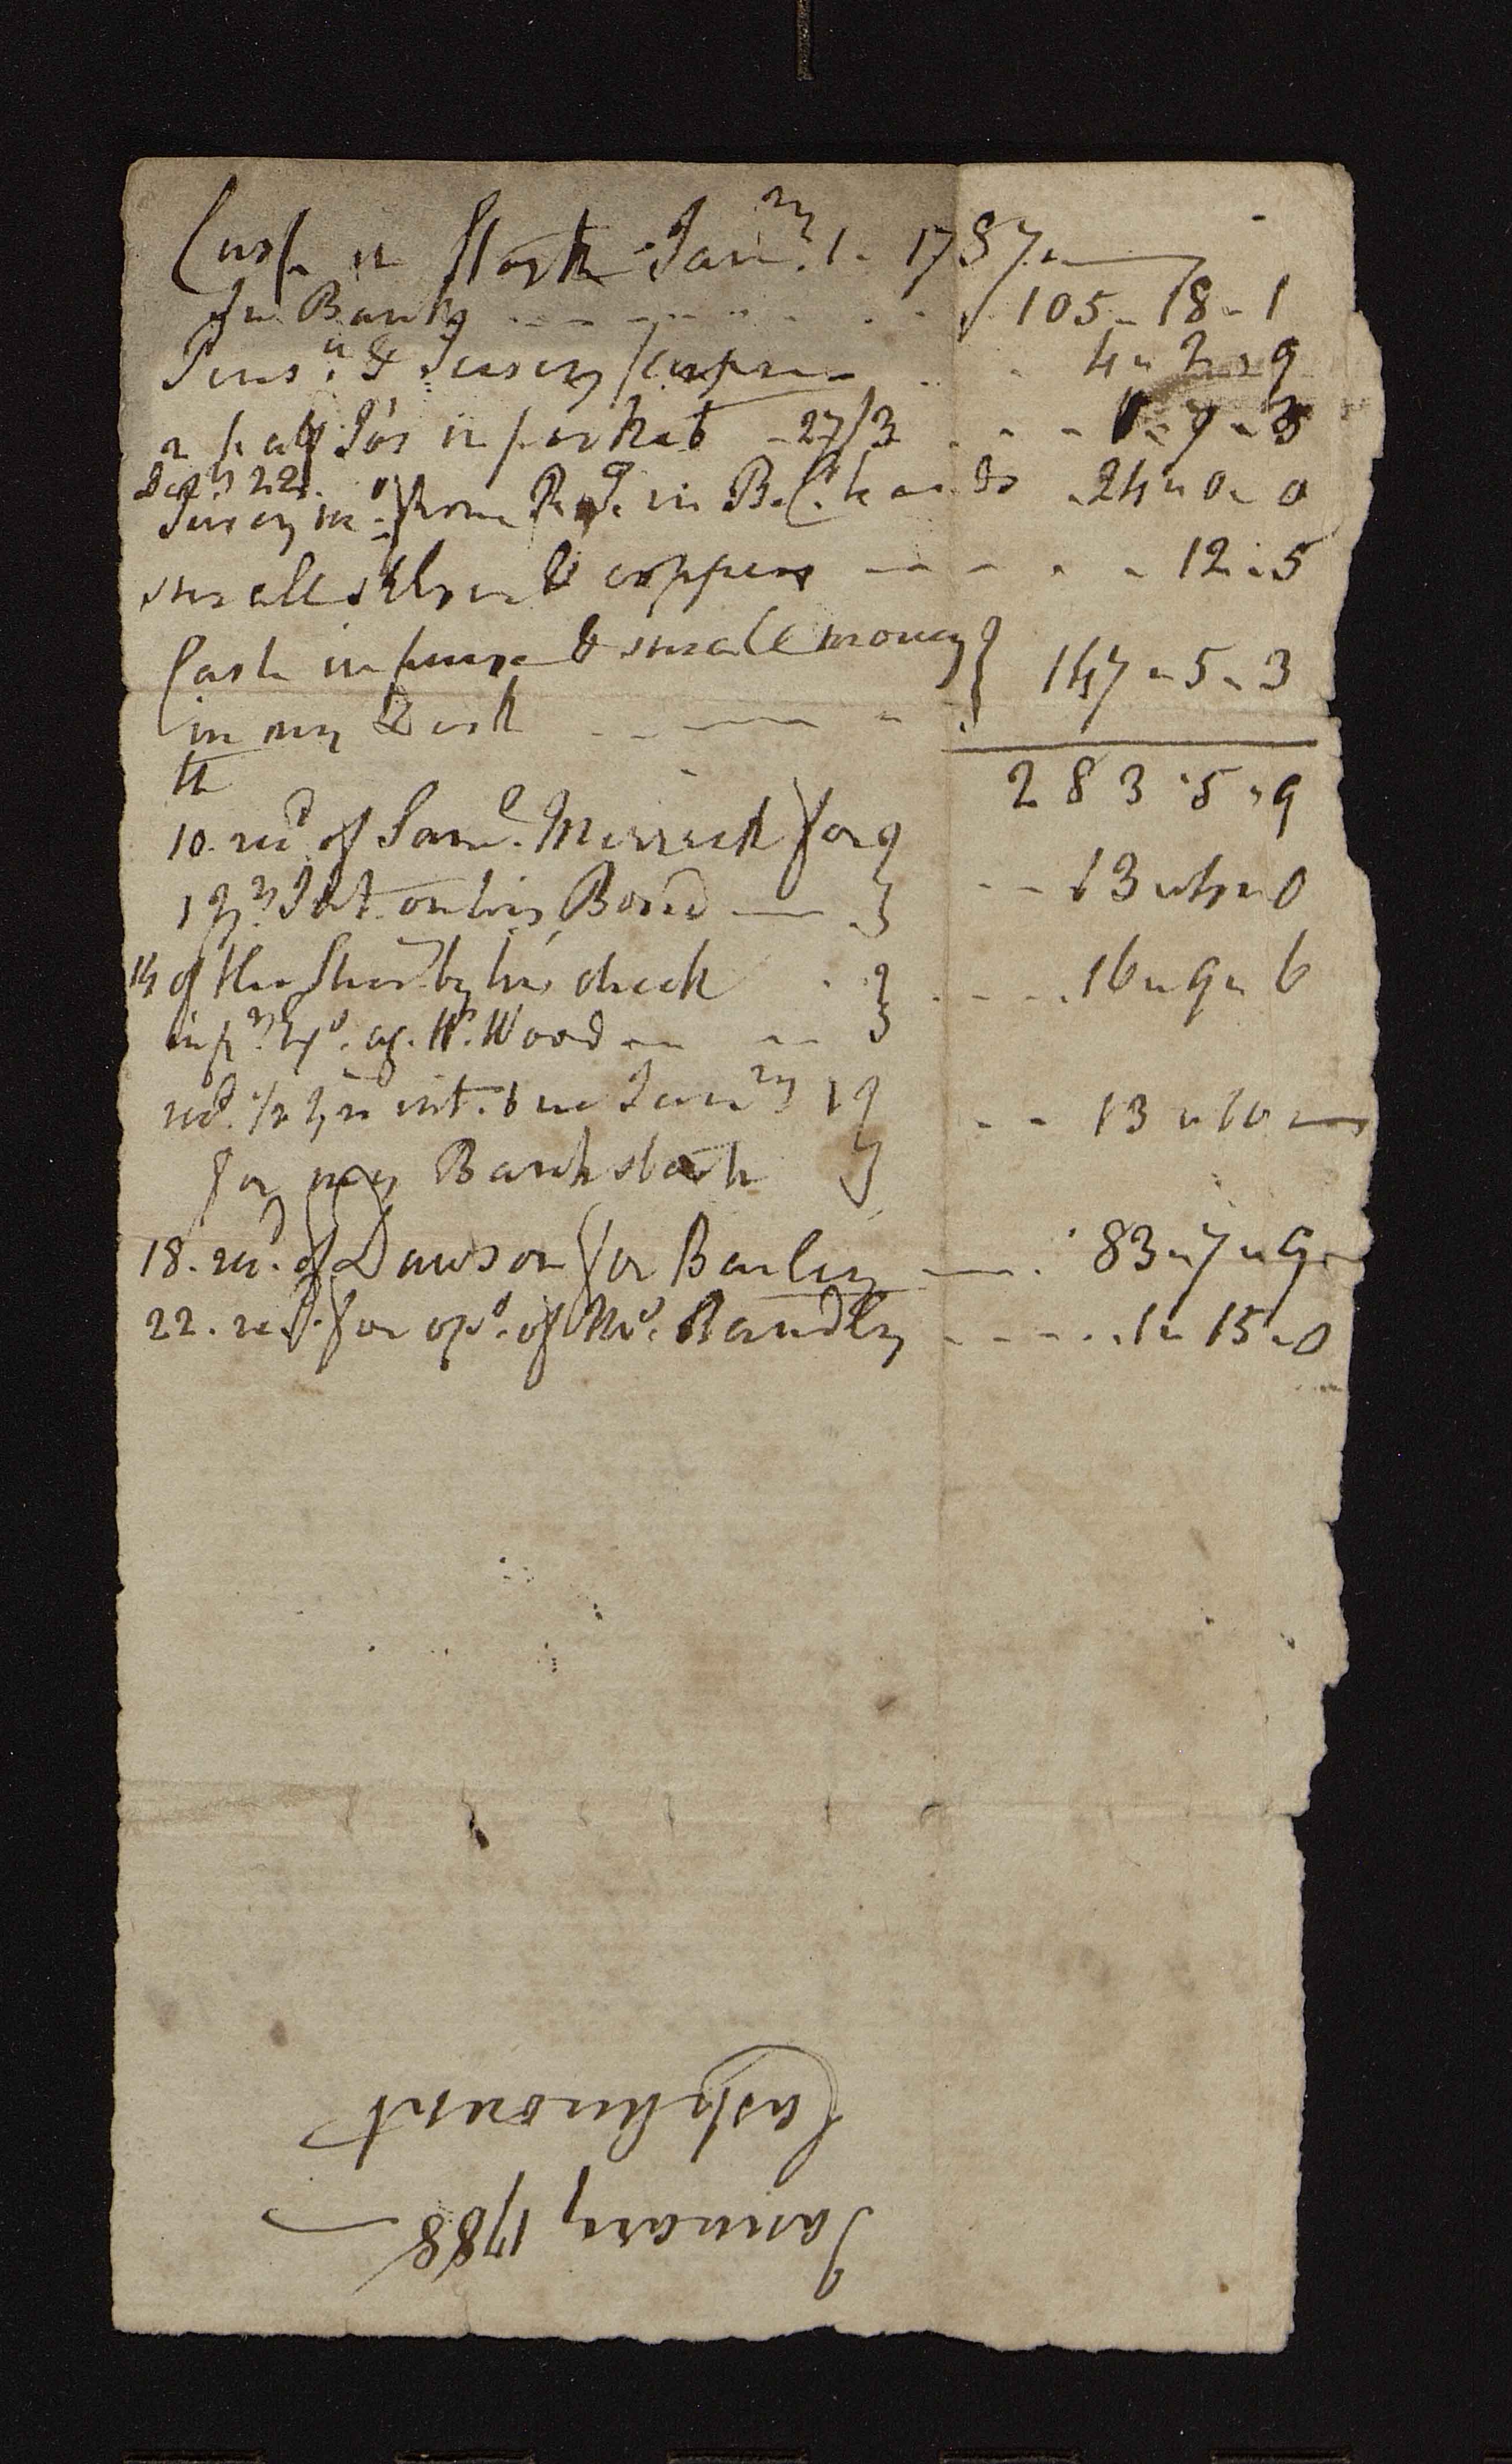 Cash in Stock Jan.ry 1. 1787
In Bank 105 - 18 - 1
Pens.a & Jersey paper 4 - 2 - 9
2 half Jos in pocket - 27/3 1 - 7 - 3
Dec.r 22
Jersey m.o from R. J. in B. C. hands 24 - 0 - 0
small silver & coppers 12 - 5
Cash in purse & small money }
in my Desk } 147 - 5 - 3
283 - 5 - 9
10. rec.d of Sam.l Merrick for }
1 y.rs Int. on his Bond } 13 - 4 - 0
14 of the by his check } 16 - 9 - 6
in p. W. Wood }
rec.d 1/2 y.rs int. due Jan.ry 1 } 13 - 10
for my Bank stock }
18. rec.d of Dawson for Barley 83 - 7 - 9
22. rec.d for of 1 - 15 - 0
Cash Account
January 1788